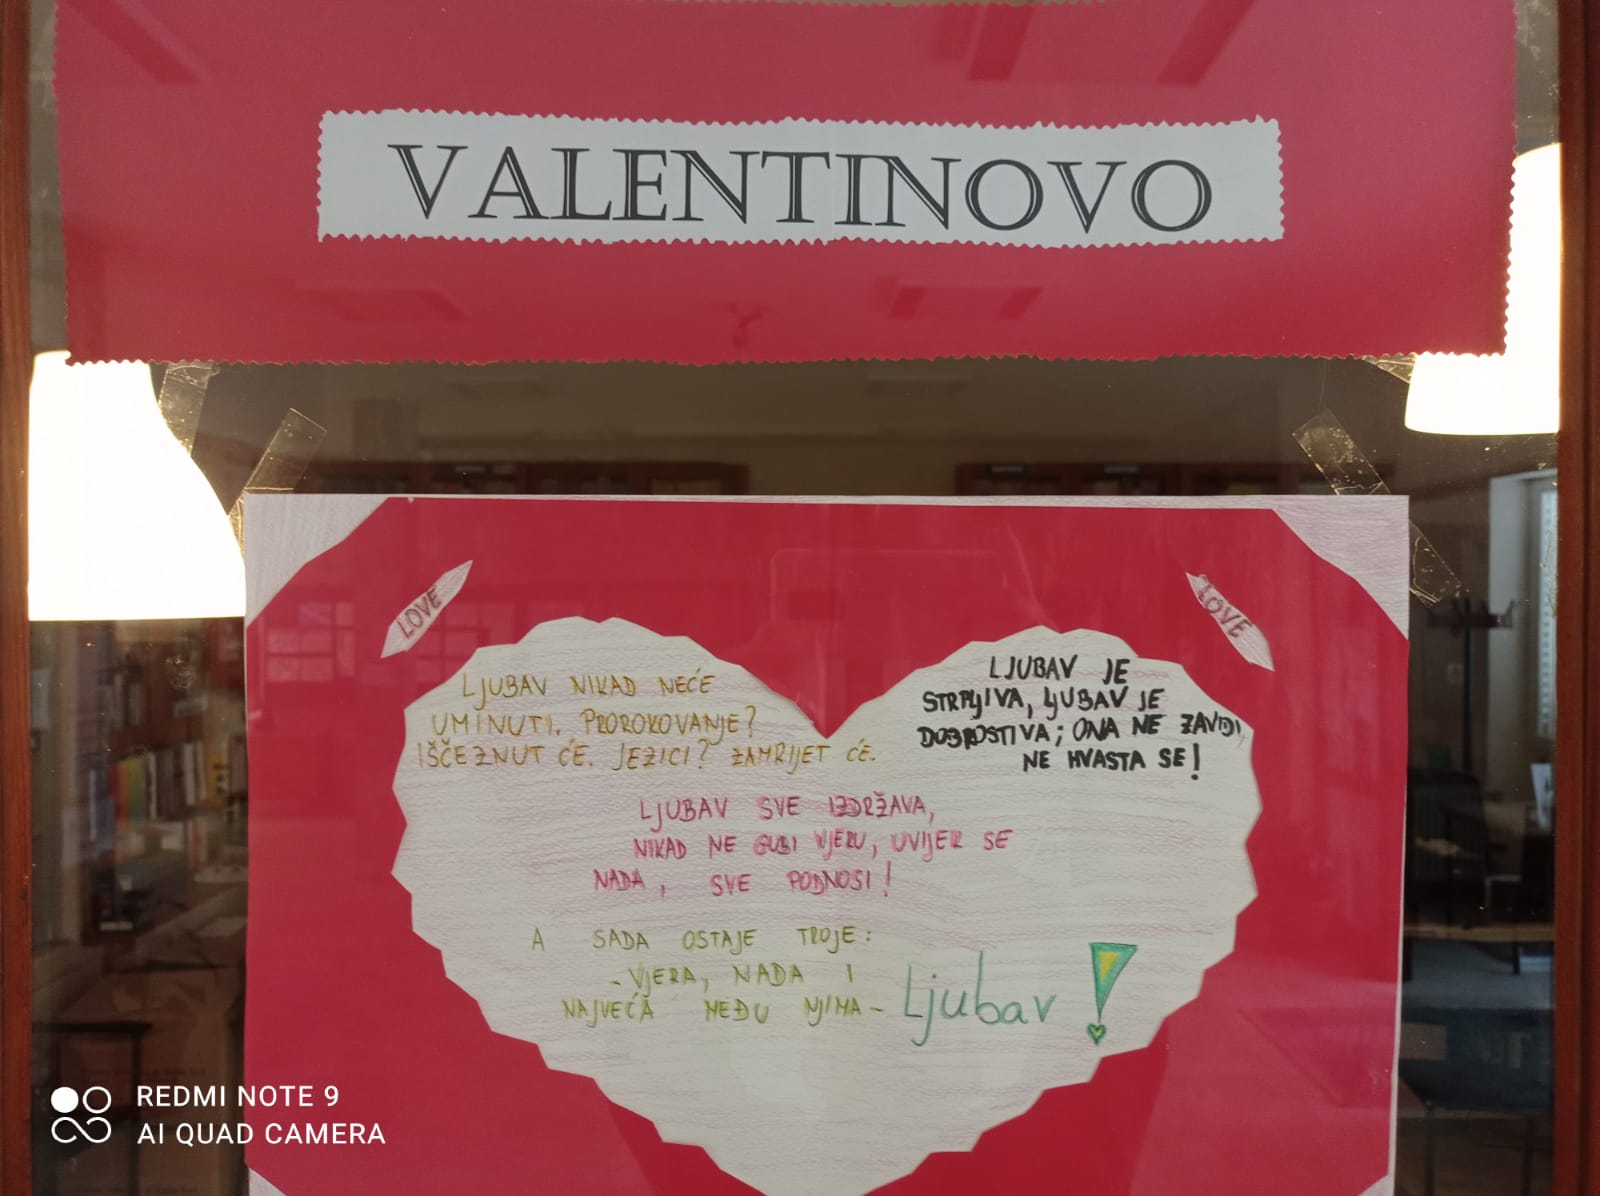 VALENTINOVO
LOVE
LOVE
LJUBAV NIKAD NEĆE
UMINUTI. PROROKOVANJE?
IŠČEZNUT ĆE. JEZICI? ZAMRIJET ĆE.
LJUBAV JE
STRPLJIVA, LJUBAV JE
DOBROSTIVA; ONA NE ZAVIDI,
NE HVASTA SE!
LJUBAV SVE IZDRŽAVA,
NIKAD NE GUBI VJERU, UVIJEK SE
NADA, SVE PODNOSI!
A SADA OSTAJE TROJE:
- VJERA, NADA I
NAJVEĆA MEĐU NJIMA - Ljubav!
REDMI NOTE 9
AI QUAD CAMERA